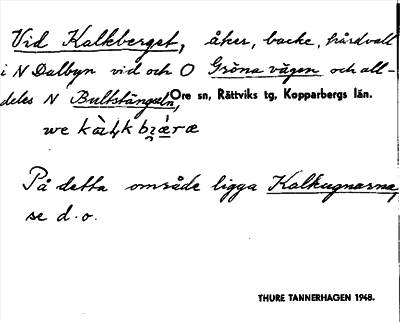 Vid Kalkberget, åker, backe, hårdvall
i N Dalbyn vid och O Gröna vägen och all-
deles N Bultstängseln, Ore sn, Rättviks tg, Kopparbergs län.
På detta område ligga Kalkugnarna,
se d.o.
THURE TANNERHAGEN 1948.